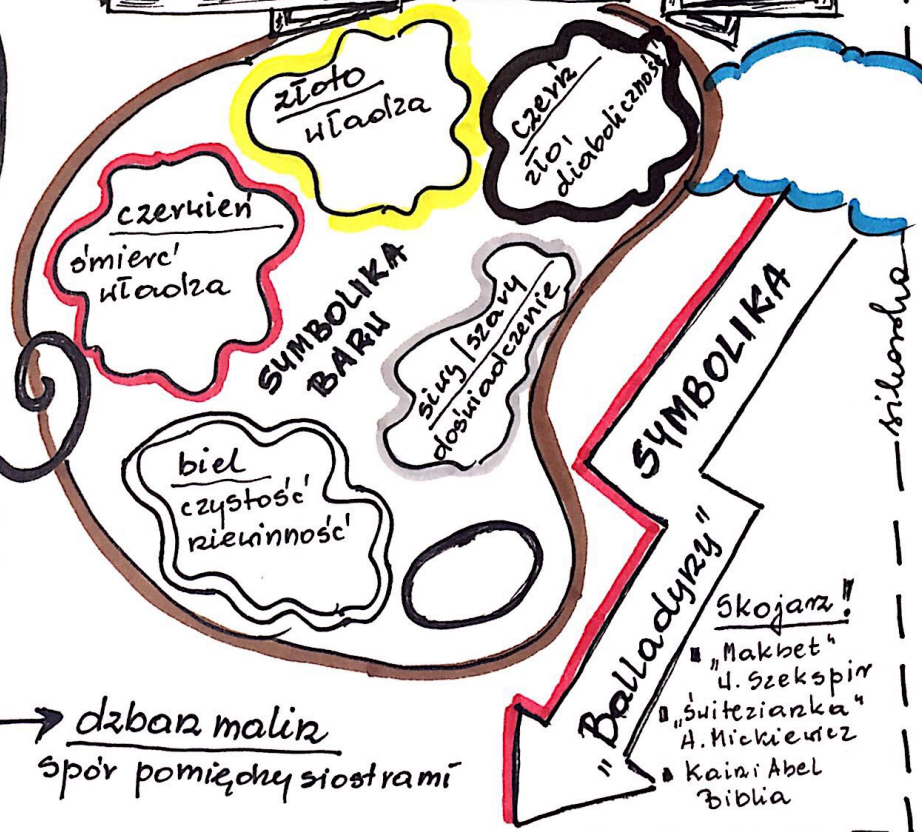 złoto
władza
czerń
zło,
diaboliczność
czerwień
śmierć
władza
SYMBOLIKA
BARW
siwy/szary
doświadczenie
biel
czystość
niewinność
SYMBOLIKA
"Balladyny"
sikorska
Skojarz!
▪ „Makbet“
W. Szekspir
▪ „Świtezianka“
A. Mickiewicz
▪ Kain i Abel
Biblia
→ dzban malin
spór pomiędzy siostrami